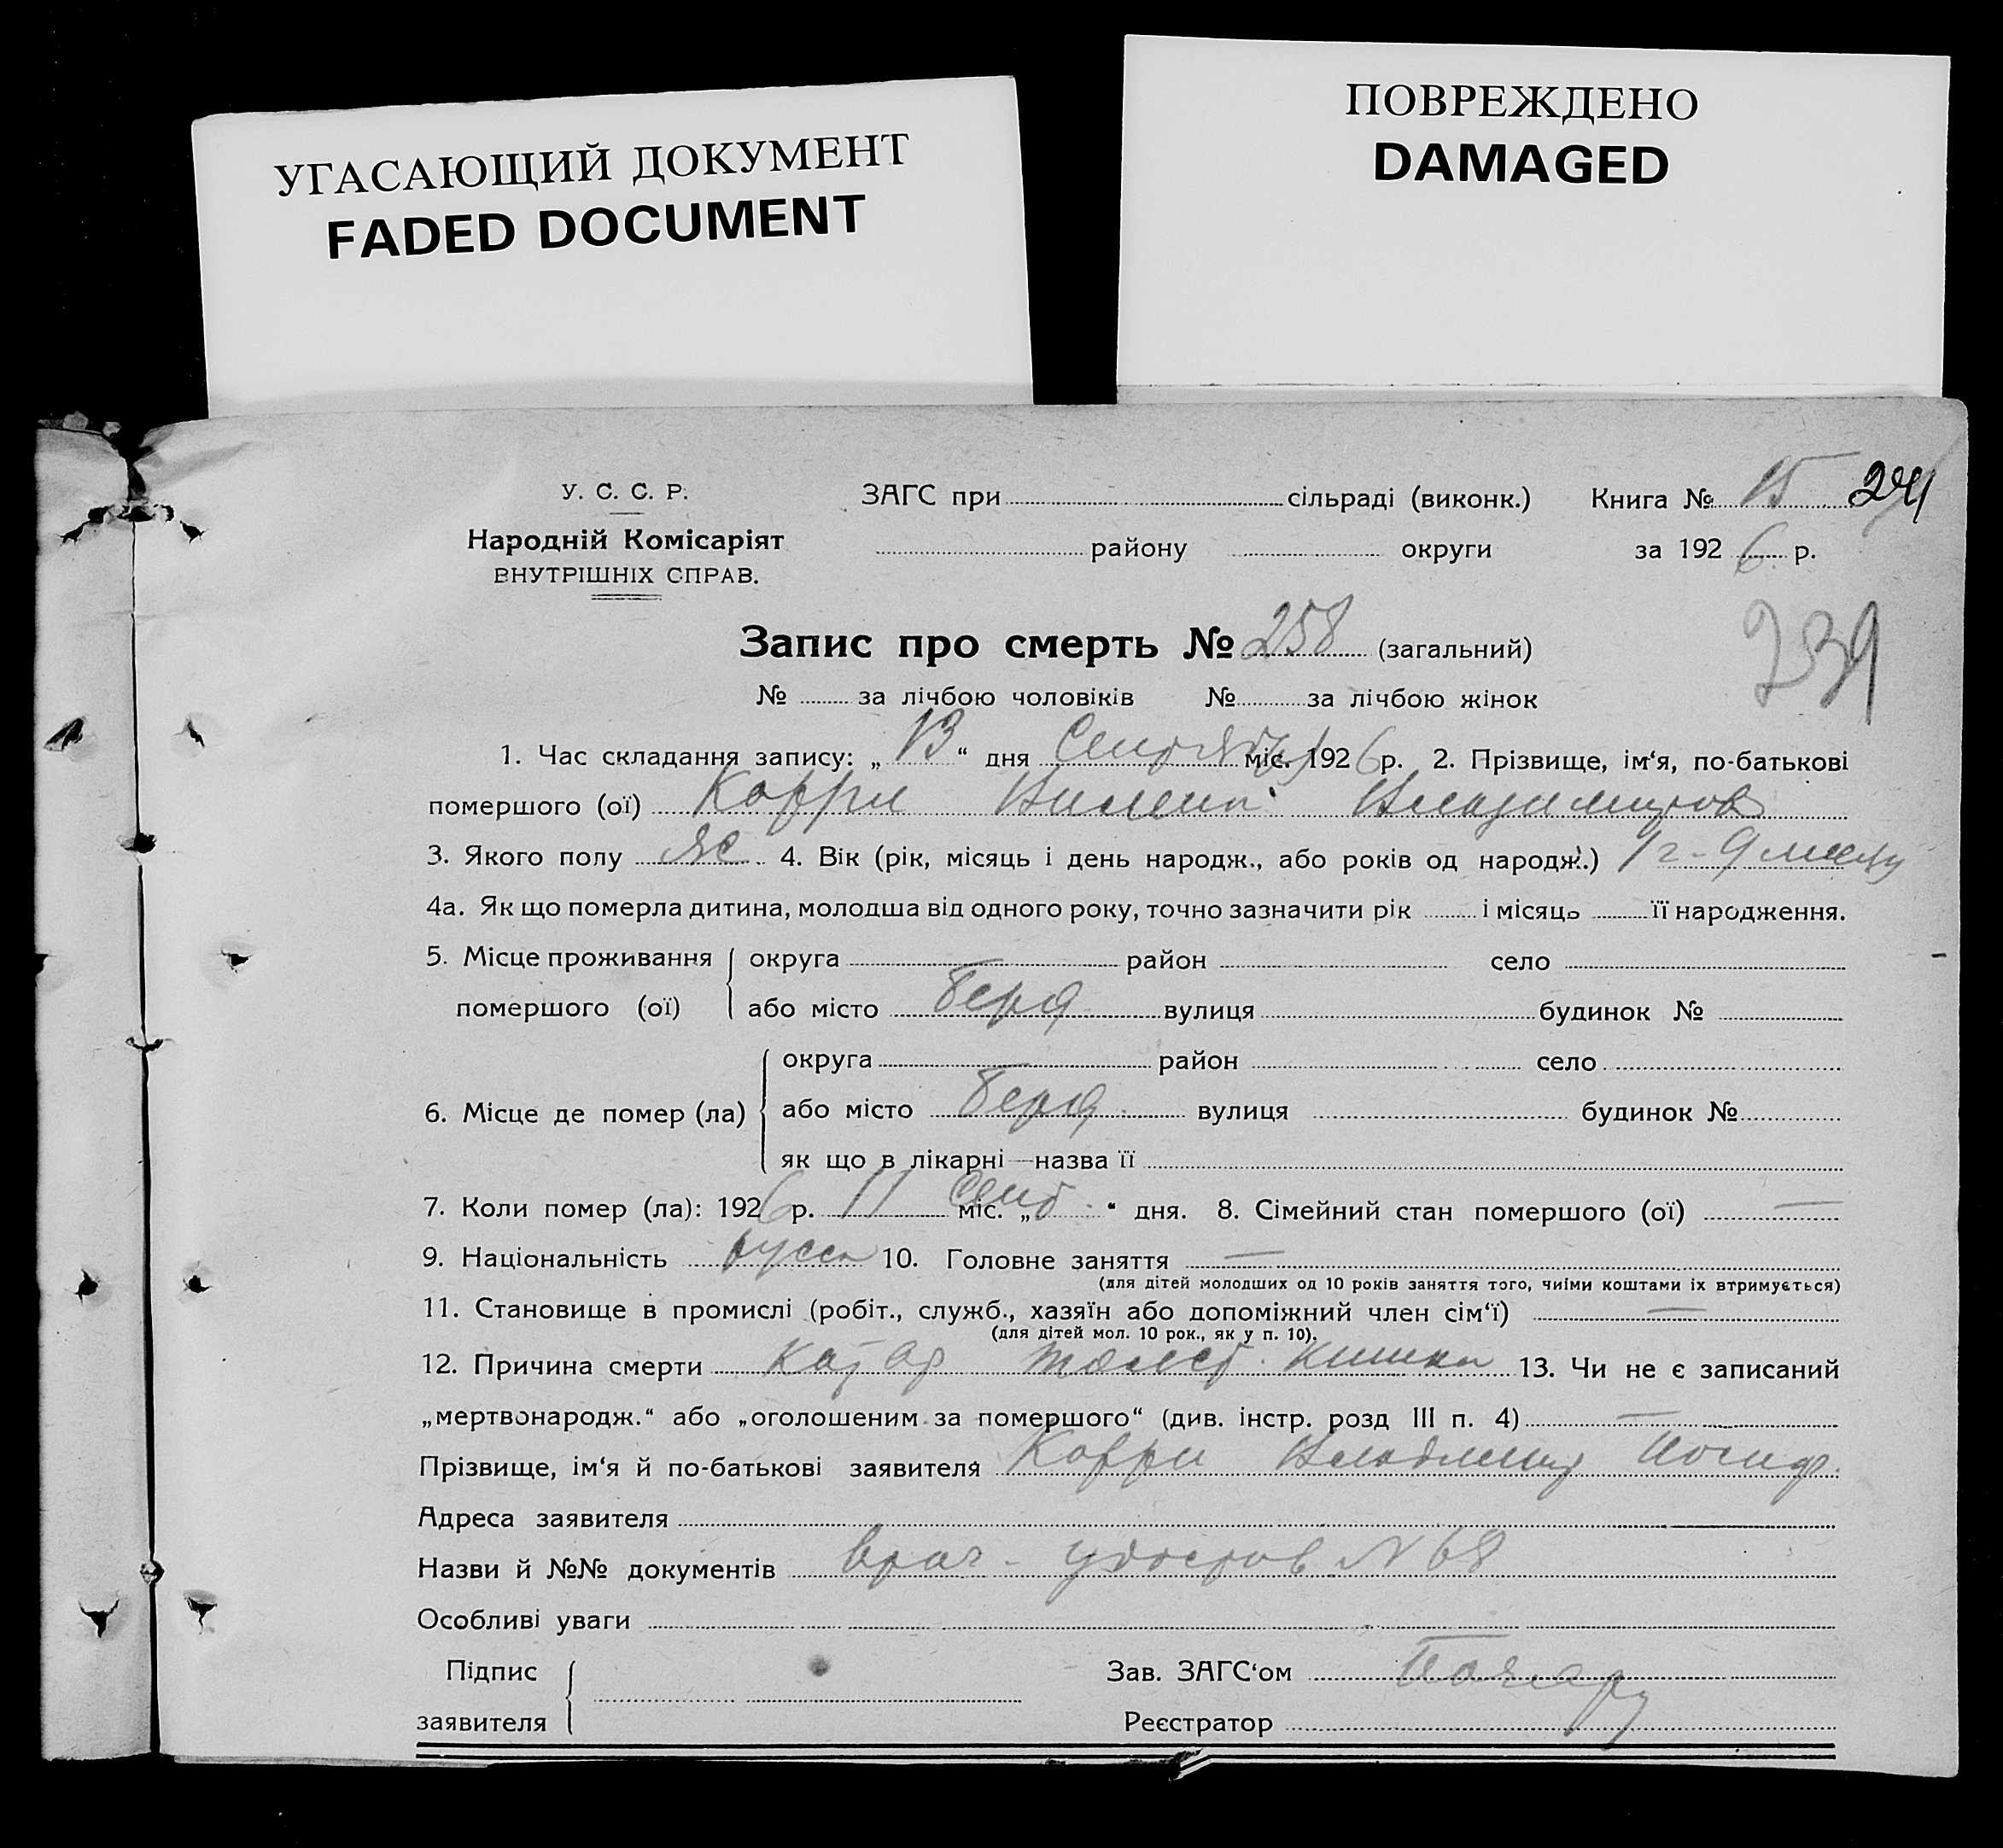 УГАСАЮЩИЙ ДОКУМЕНТ
FADED DOCUMENT
ПОВРЕЖДЕНО
DAMAGED
У. С. С. Р.
Народній Комісаріят
ВНУТРІШНІХ СПРАВ.
ЗАГС при сільраді (виконк.) Книга № 15 241
району округи за 1926 р.
239
Запис про смерть № 258 (загальний)
№ за лічбою чоловіків № за лічбою жінок
1. Час складання запису: „13“ дня Сентября міс. 1926 р. 2. Прізвище, ім‘я, по-батькові
помершого (ої) Корри Владимиров
3. Якого полу Ж 4. Вік (рік, місяць і день народж., або років од народж.) 1 г - 9 месяц
4а. Як що померла дитина, молодша від одного року, точно зазначити рік і місяць її народження.
5. Місце проживання округа район село
помершого (ої) або місто Берд вулиця будинок №
округа район село
6. Місце де помер (ла) або місто Берд. вулиця будинок №
як що в лікарні—назва її
7. Коли помер (ла): 1926 р. 11 міс. „Сент.“ дня. 8. Сімейний стан помершого (ої) —
9. Національність русск 10. Головне заняття —
(для дітей молодших од 10 років заняття того, чиїми коштами їх втримується)
11. Становище в промислі (робіт., служб., хазяїн або допоміжний член сім‘ї) —
(для дітей мол. 10 рок., як у п. 10).
12. Причина смерти Катар толст. кишки 13. Чи не є записаний
„мертвонародж.“ або „оголошеним за помершого“ (див. інстр. розд III п. 4) —
Прізвище, ім‘я й по-батькові заявителя Корри Владимир Иосиф.
Адреса заявителя
Назви й №№ документів врач - удостов N 68
Особливі уваги
Підпис Зав. ЗАГС‘ом
заявителя Реєстратор